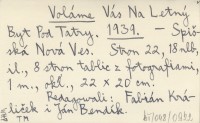 Voláme Vás Na Letný
Byt Pod Tatry. 1931. — Spiš
ská Nová Ves. Stron 22, 18 nlb,
il., 8 stron tablic z fotografiami,
1 m., okł., 22 x 20 cm.
Redagowali: Fabián Krá-
liček i Ján Bendík.
TM